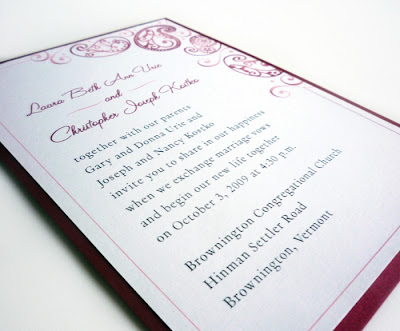 Laura Beth Ann Urie
and
Christopher Joseph Kostko
together with our parents
Gary and Donna Urie and
Joseph and Nancy Kostko
invite you to share in our happiness
when we exchange marriage vows
and begin our new life together
on October 3, 2009 at 4:30 p.m.
Brownington Congregational Church
Hinman Settler Road
Brownington, Vermont